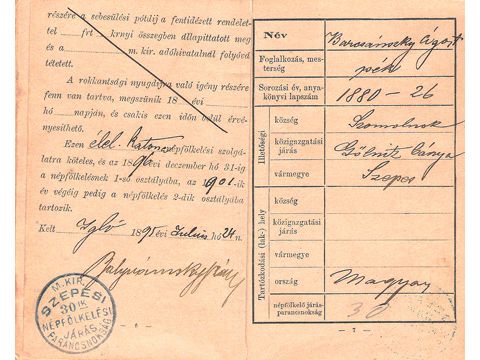 részére a sebesülési pótdij a fentidézett rendelet-
tel frt krnyi összegben állapittatott meg
és a m. kir. adóhivatalnál folyóvá
tétetett.
A rokkantsági nyugdijra való igény részére
fenn van tartva, megszünik 18 évi
hó napján, és csakis ezen időn belül érvé-
nyesithető.
Ezen élel. Katona népfölkelési szolgá-
latra köteles, és az 1896 deczember hó 31-ig
a népfölkelésnek 1-ső osztályába, az 1901-ik
év végéig pedig a népfölkelés 2-dik osztályába
tartozik.
Kelt Igló 1891 évi Julius hó 24 n.
M. KIR.
SZEPESI
30 IK
NÉPFÖLKELÉSI
JÁRÁS
PARANCSNOKSÁG
Név
Foglalkozás, mes-
terség
pék
Sorozási év, anya-
könyvi lapszám
1880 - 26
Illetőségi
község
Szomolnok
közigazgatási
járás
Gölnitz bánya
vármegye
Szepes
Tartózkodási (lak-) hely
község
közigazgatási
járás
vármegye
ország
Magyar
népfölkelő járás-
parancsnokság
30
- 7 -